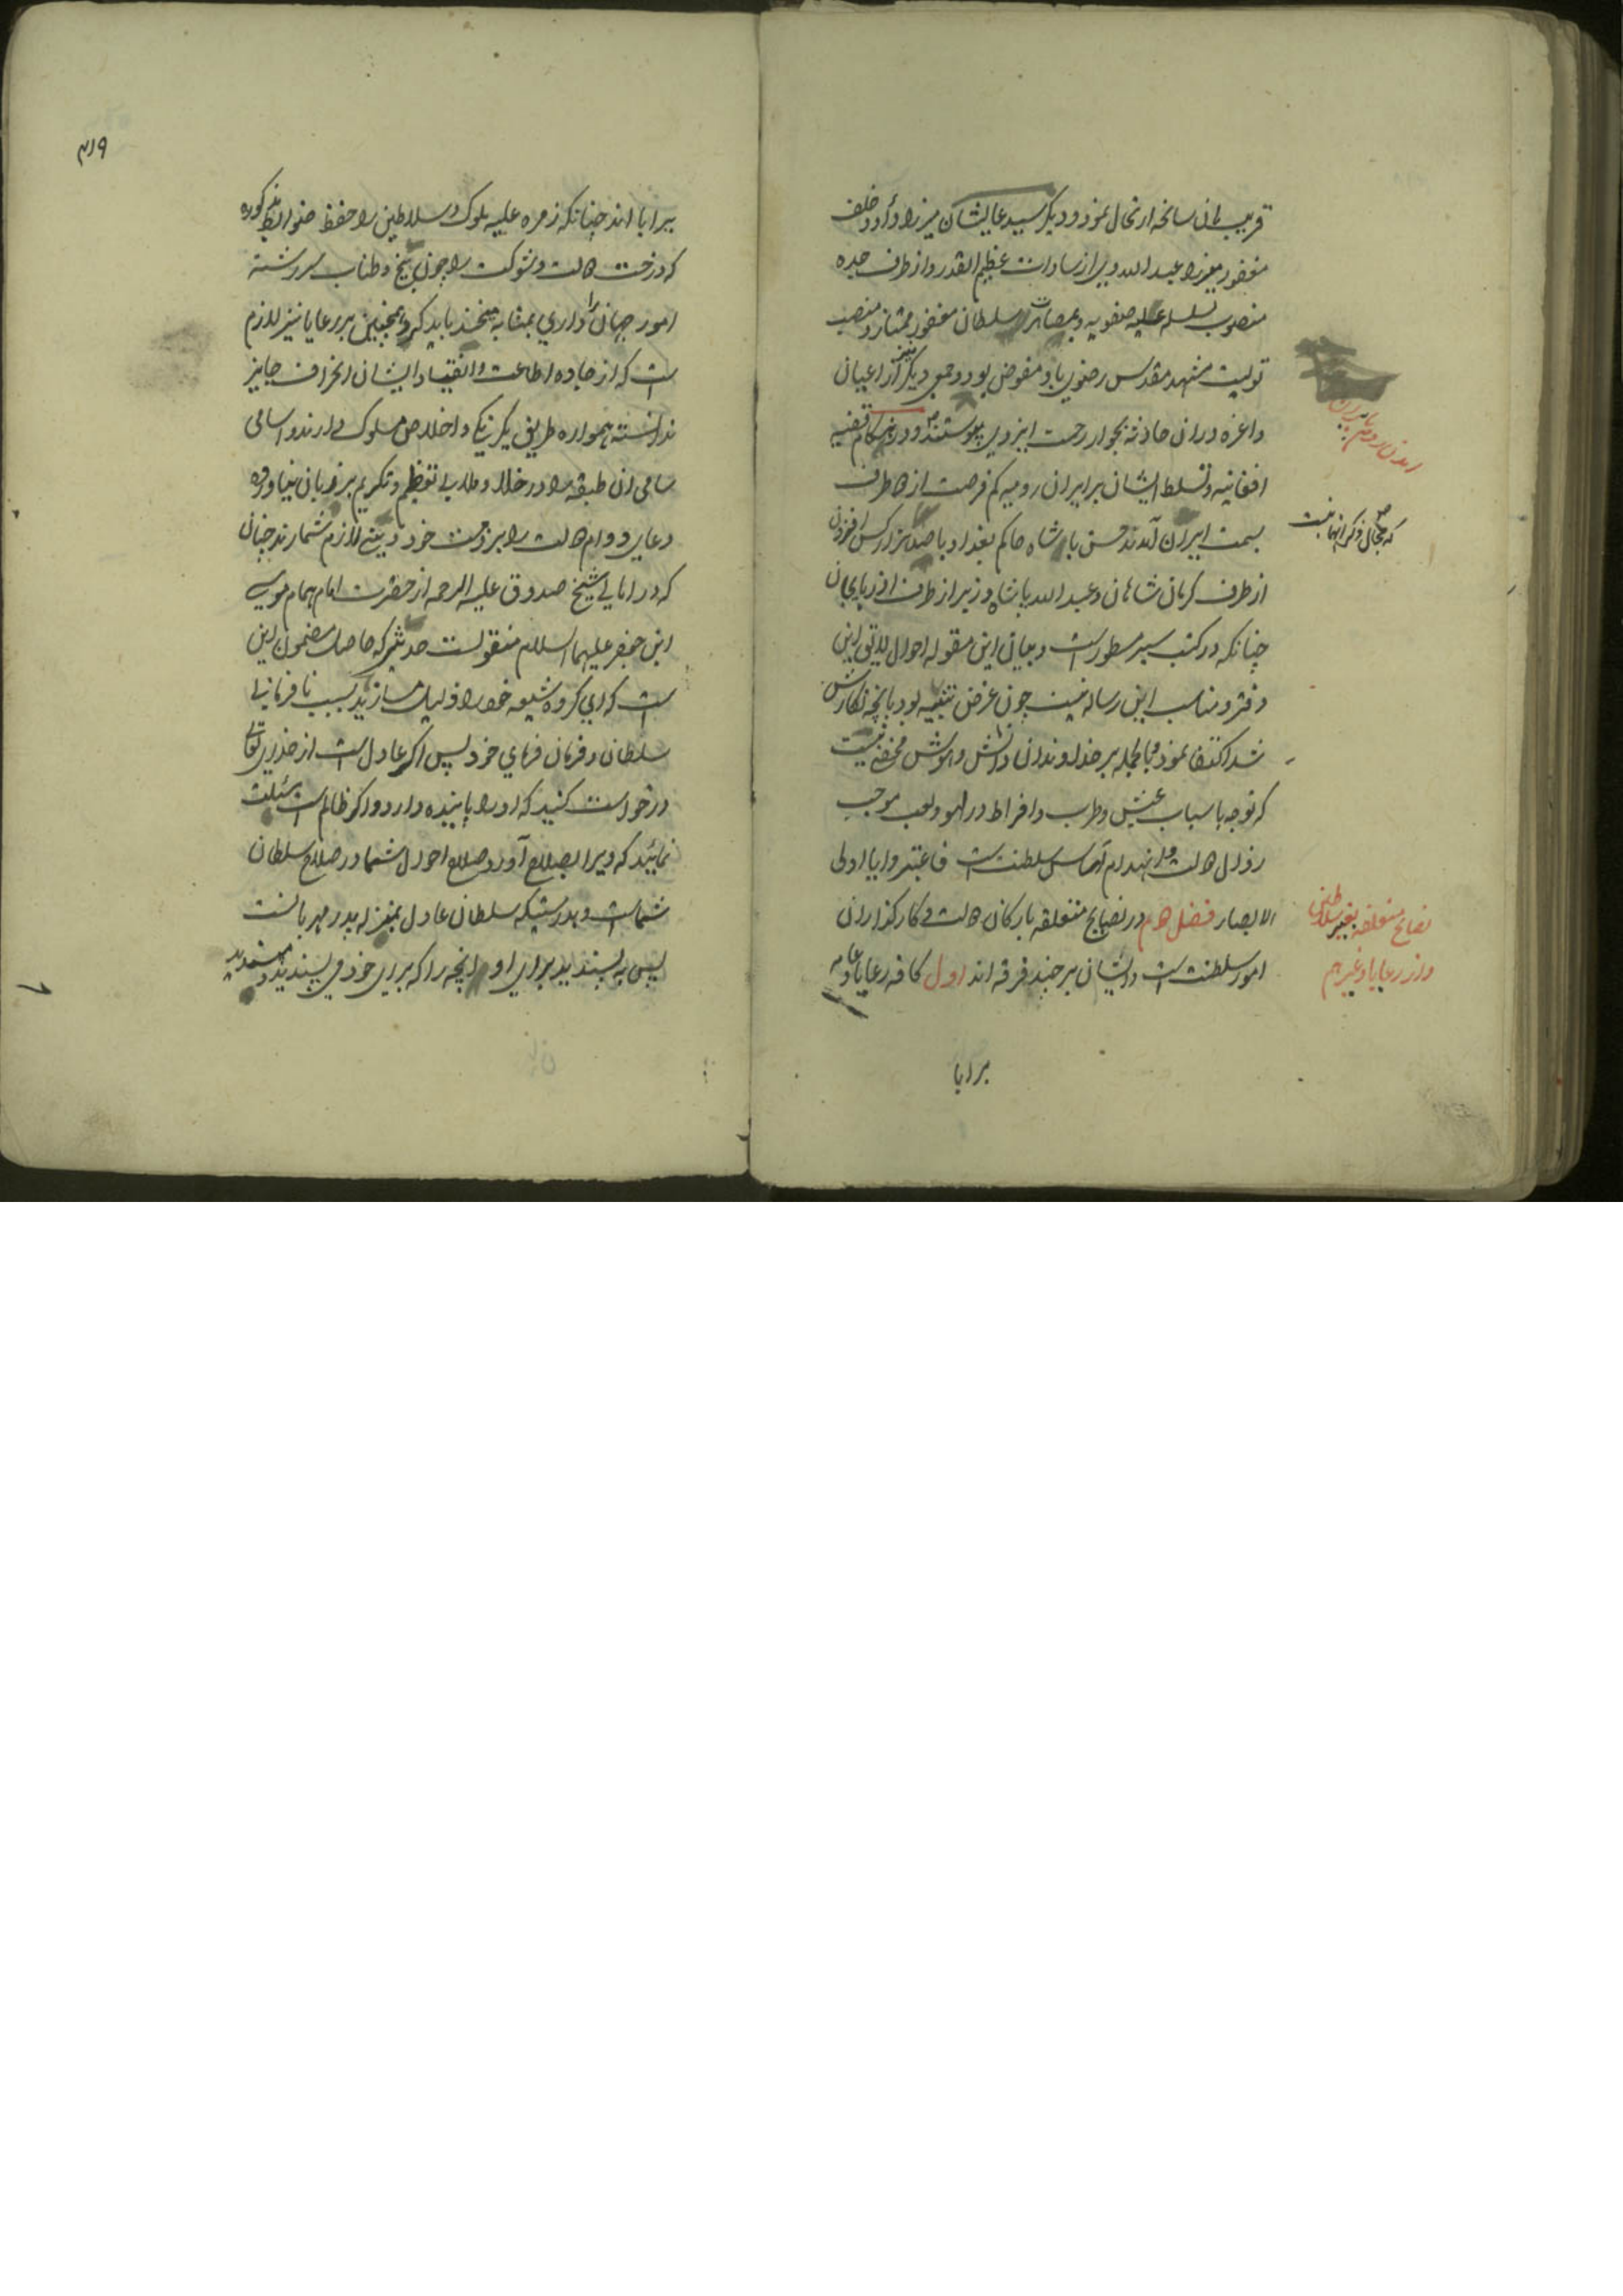 قریب بان سانحه ارتحال نمود و دیگر سید عالیشان میرزا داود خلف
مغفور میرزا عبدالله وی از سادات عظیم القدر و از طرف جده
منصوب بسلسله علیه صفویه و بمصاهرت سلطان مغفور ممتاز و منصب
تولیت مشهد مقدس رضوی باو مفوض بود و جمعی دیگر نیز از اعیان
و اعزه دران حادثه بجوار رحمت ایزدی پیوستند و در هنگام قضیه
افغانیه و تسلط ایشان بر ایران رومیه کم فرصت از دو طرف
بسمت ایران آمدند حسن پادشاه حاکم بغداد با صد هزار کس افزون
از طرف کرمان شاهان و عبدالله پاشاه وزیر از طرف اذربایجان
چنانکه در کتب سیر مسطور است و بیان این مقوله احوال لایق این
دفتر و مناسب این رساله نیست چون غرض تنبیه بود بانچه نگارش
شد اکتفا نمود و بالجمله بر خداوندان دانش و هوش مخفی نیست
که توجه باسباب عیش و طرب و افراط در لهو و لعب موجب
زوال دولت و انهدام اساس سلطنت است فاعتبروا یا اولی
الابصار فصل دوم در نصایح متعلقه بارکان دولت و کارگذاران
امور سلطنت است و ایشان بر چند فرقه اند اول کافه رعایا و عامه
برایا
که مجال ذکر انها نیست
نصایح متعلقه بغیر سلاطین
و از رعایا و غیرهم
۴۱۹
برایا اند چنانکه زمره علیه ملوک و سلاطین را حفظ ضوابط مذکوره
که درخت دولت و شوکت را چون بیخ و طناب سررشته
امور جهان داری بمثابه میخند باید کرد همچنین بر رعایا نیز لازم
است که از جاده اطاعت و انقیاد ایشان انحراف جایز
ندانسته همواره طریق یکرنگی و اخلاص مسلوک دارند و اسامی
سامی ان طبقه را در خلا و ملا بی تعظیم و تکریم بر زبان نیاورده
دعای دوام دولت را بر ذمت خود دینی لازم شمارند چنان
که در امالی شیخ صدوق علیه الرحمه از حضرت امام همام موسی
ابن جعفر علیهما السلام منقولست حدیثی که حاصل مضمون این
است که ای گروه شیعه خود را ذلیل مسازید بسبب نافرمانی
سلطان و فرمان فرمای خود پس اگر عادل است از خدای تعالی
درخواست کنید که او را پاینده دارد و اگر ظالم است مسئلت
نمایید که ویرا بصلاح آورد و صلاح احوال شما در صلاح سلطان
شماست و بدرستیکه سلطان عادل بمنزله پدر مهربانست
پس به پسندید برای او انچه را که برای خود می پسندید و مپسندید